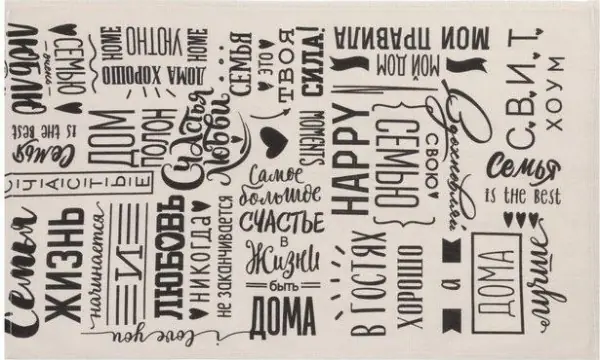 люблю
очень
СЕМЬЮ
HOME
УЮТНО
HOME
ДОМА ХОРОШО
СЕМЬЯ
ЭТО
ТВОЯ
СИЛА!
МОЙ ДОМ
МОИ ПРАВИЛА
С.В.И.Т.
ХОУМ
Семья
is the Best
ДОМ
ПОЛОН
Счастья
Любви
MOMENTS
HAPPY
СЕМЬЮ
СВОЮ
Вдохновляй
Семья
is the Best
СЧАСТЬЕ
Семья
ЖИЗНЬ
начинается
И
ЛЮБОВЬ
НИКОГДА
не заканчивается
i love you
Самое
большое
СЧАСТЬЕ
в
Жизни
быть
ДОМА
В ГОСТЯХ
ХОРОШО
а
ДОМА
лучше